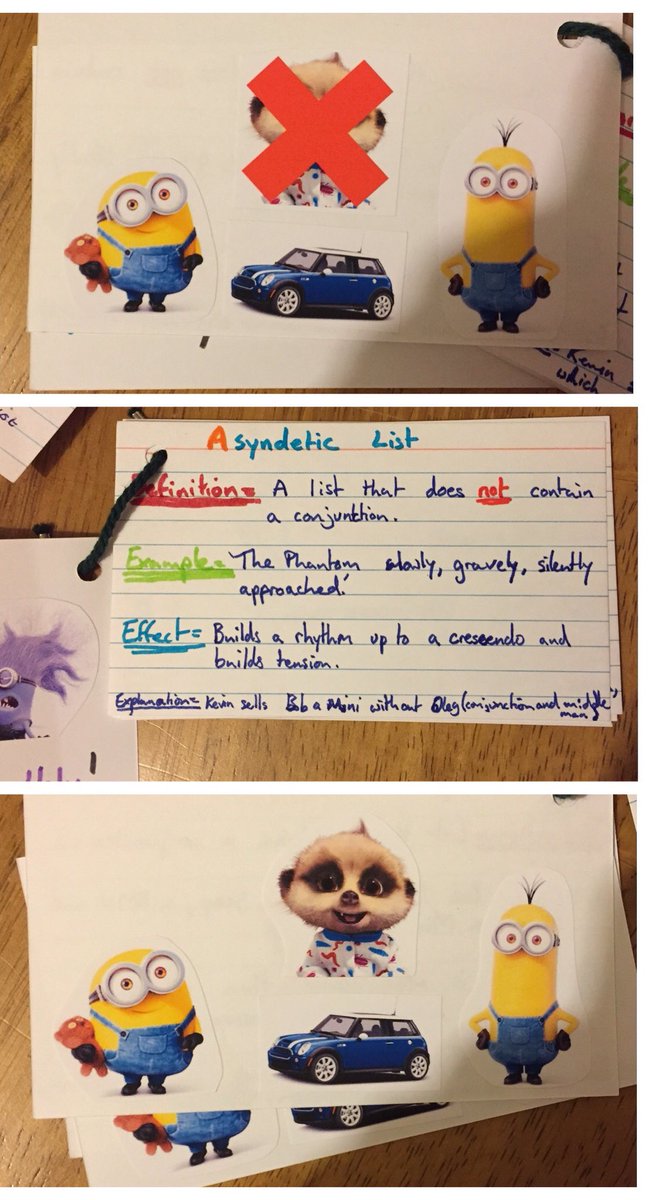 Kevin
which
Asyndetic List
Definition= A list that does not contain
a conjunction.
Example= 'The Phantom slowly, gravely, silently
approached.'
Effect= Builds a rhythm up to a crescendo and
builds tension.
Explanation= Kevin sells Bob a Mini without Oleg (conjunction and middle
man)